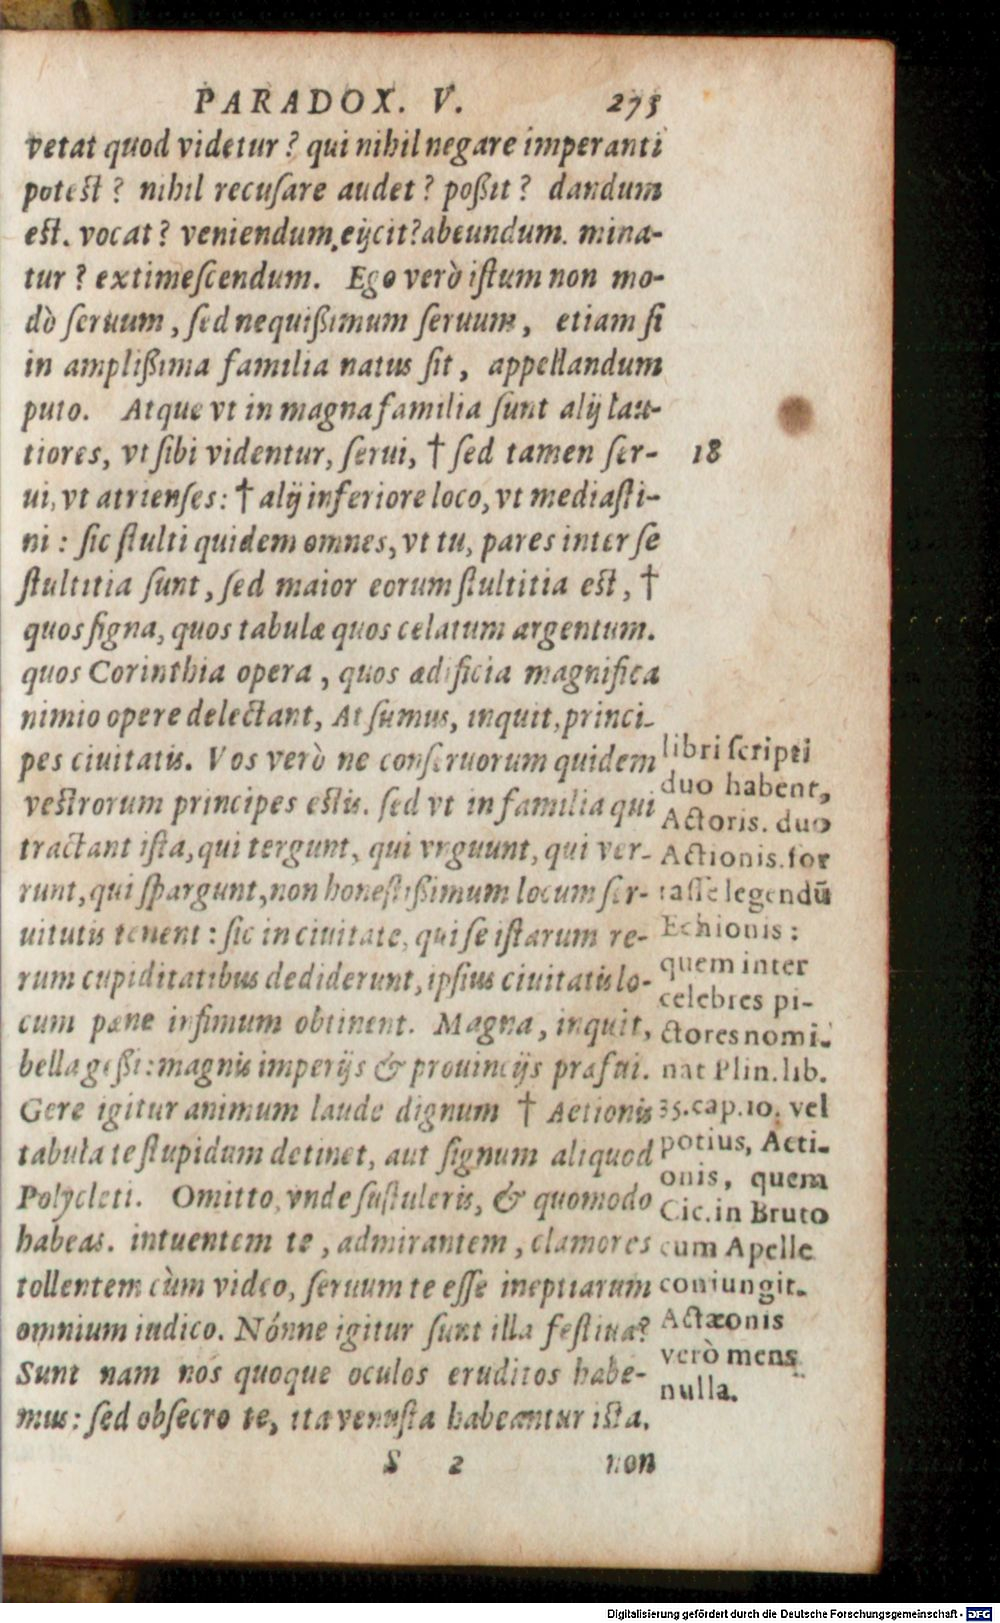 PARADOX. V. 275
vetat quod videtur? qui nihil negare imperanti
potest? nihil recusare audet? poßit? dandum
est. vocat? veniendum, eijcit? abeundum. mina-
tur? extimescendum. Ego verò istum non mo-
dò seruum, sed nequißimum seruum, etiam si
in amplißima familia natus sit, appellandum
puto. Atque vt in magna familia sunt alij lau-
tiores, vt sibi videntur, serui, † sed tamen ser-
18
ui, vt atrienses: † alij inferiore loco, vt mediasti-
ni: sic stulti quidem omnes, vt tu, pares inter se
stultitia sunt, sed maior eorum stultitia est, †
quos signa, quos tabulæ quos celatum argentum.
quos Corinthia opera, quos ædificia magnifica
nimio opere delectant, At sumus, inquit, princi-
pes ciuitatis. Vos verò ne conseruorum quidem
vestrorum principes estis. sed vt in familia qui
tractant ista, qui tergunt, qui vnguunt, qui ver-
runt, qui spargunt, non honestißimum locum ser-
uitutis tenent: sic in ciuitate, qui se istarum re-
rum cupiditatibus dediderunt, ipsius ciuitatis lo-
cum pæne infimum obtinent. Magna, inquit,
bella geßi: magnis imperijs & prouincijs præfui.
Gere igitur animum laude dignum † Aetionis
tabula te stupidum detinet, aut signum aliquod
Polycleti. Omitto, vnde sustuleris, & quomodo
habeas. intuentem te, admirantem, clamores
tollentem cùm video, seruum te esse ineptiarum
omnium iudico. Nónne igitur sunt illa festiua?
Sunt nam nos quoque oculos eruditos habe-
mus: sed obsecro te, ita venusta habeantur ista,
libri scripti
duo habent,
Actoris. duo
Actionis. for
tasse legendū
Echionis:
quem inter
celebres pi-
ctores nomi-
nat Plin. lib.
35. cap. 10. vel
potius, Aeti-
onis, quem
Cic. in Bruto
cum Apelle
coniungit.
Actæonis
verò mens
nulla.
S 2 non
Digitalisierung gefördert durch die Deutsche Forschungsgemeinschaft - DFG